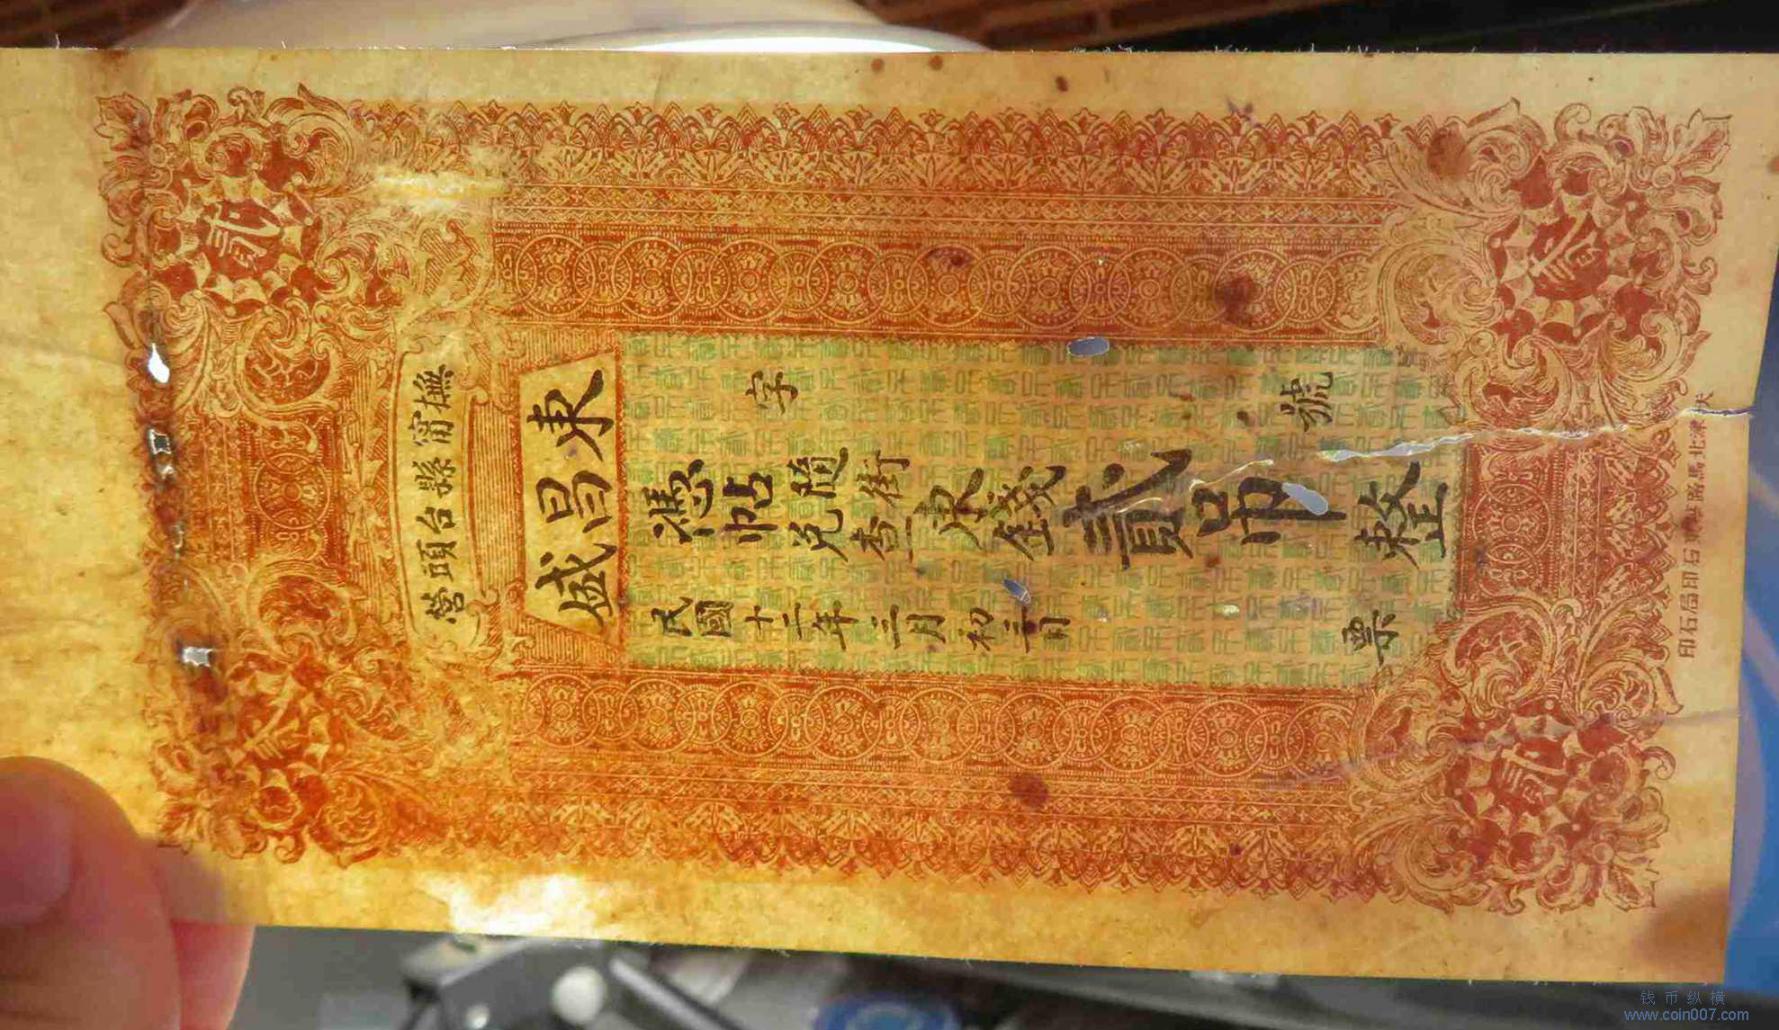 撫甯縣台頭營
東昌盛
字 號
憑帖隨街兌查東錢貳吊整
民國十二年三月初三日 票
天津北馬路石印局石印
钱币纵横
www.coin007.com